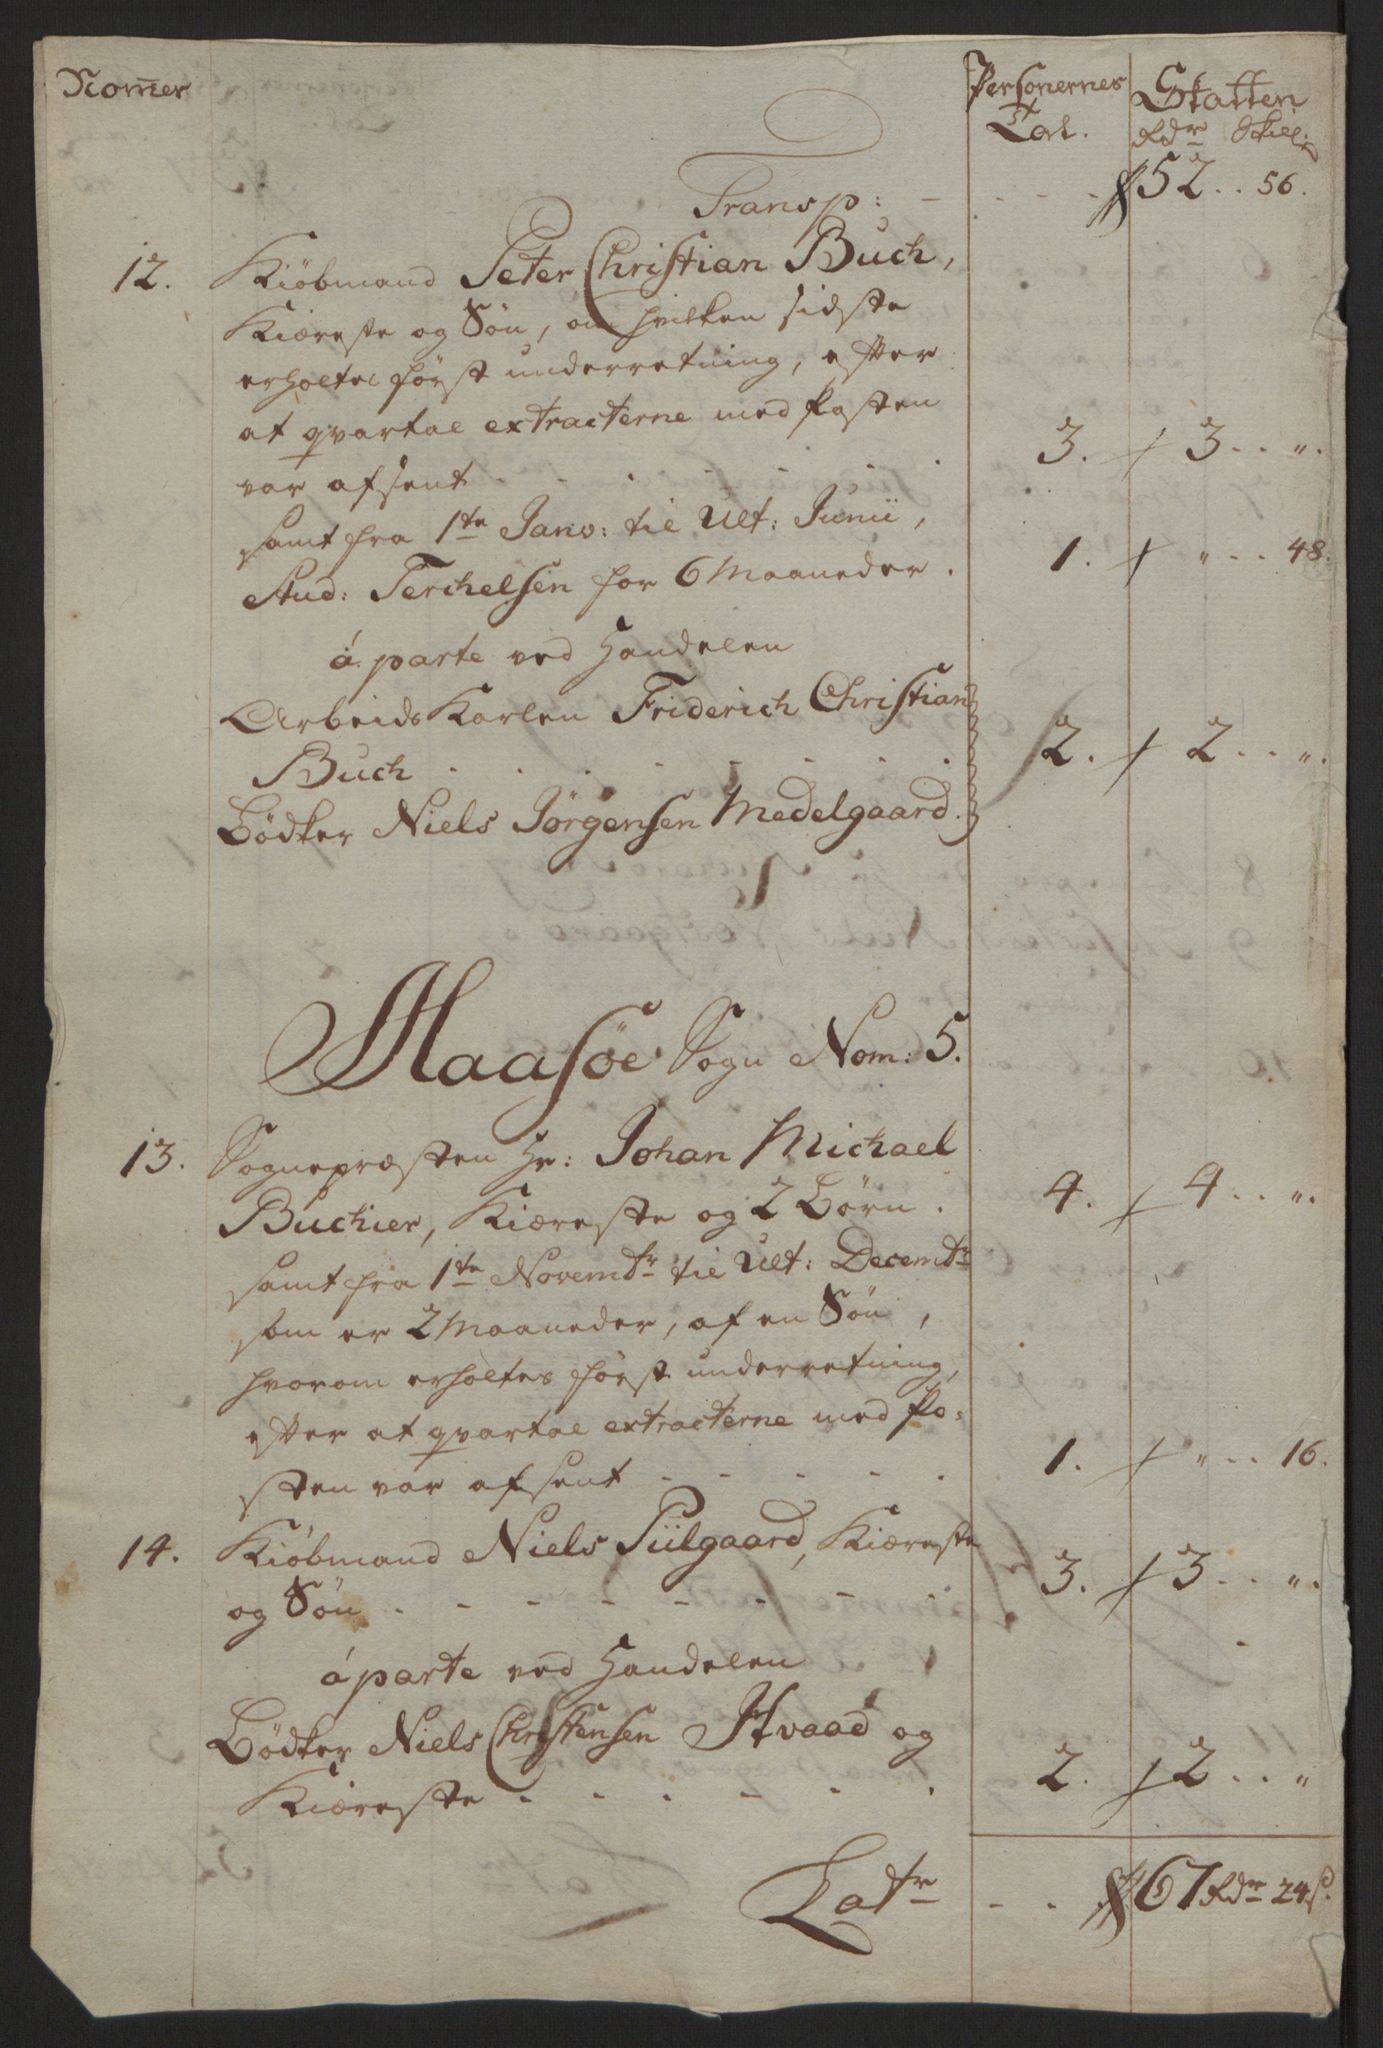 Nomer
Personernes
Tal.
Skatten
Rdr Skill:
Transp: - - - - 52 .. 56.
12. Kiöbmand Peter Christian Buch,
Kiæreste og Sön, om hvilken sidste
erholtes först underretning, efter
at qvartal extracterne med Posten
var afsent . . . . . . 3. 3 .. ".
samt fra 1te Janv: til Ult: Junii,
Stud: Terchelsen for 6 Maaneder. 1. " .. 48.
á parte ved Handelen
Arbeids Karlen Friderich Christian
Buch . . . . . . 2. 2 .. ".
Bödker Niels Jörgensen Medelgaard.
Maasöe Sogn Nom: 5.
13. Sognepræsten Hr: Johan Michael
Buchier, Kiæreste og 2 Börn. 4. 4 .. ".
samt fra 1te Novembr til Ult: Decembr
som er 2 Maaneder, af en Sön,
hvorom erholtes först underretning,
efter at qvartal extracterne med Po-
sten var afsent - - - - . 1. " .. 16.
14. Kiöbmand Niels Piilgaard, Kiæreste
og Sön . - - - - - - . 3. 3 .. ".
á parte ved Handelen
Bödker Niels Christensen Hvaad og
Kiæreste . . . - . . 2. 2 .. "
Latr - - . 67 Rdr 24 s.